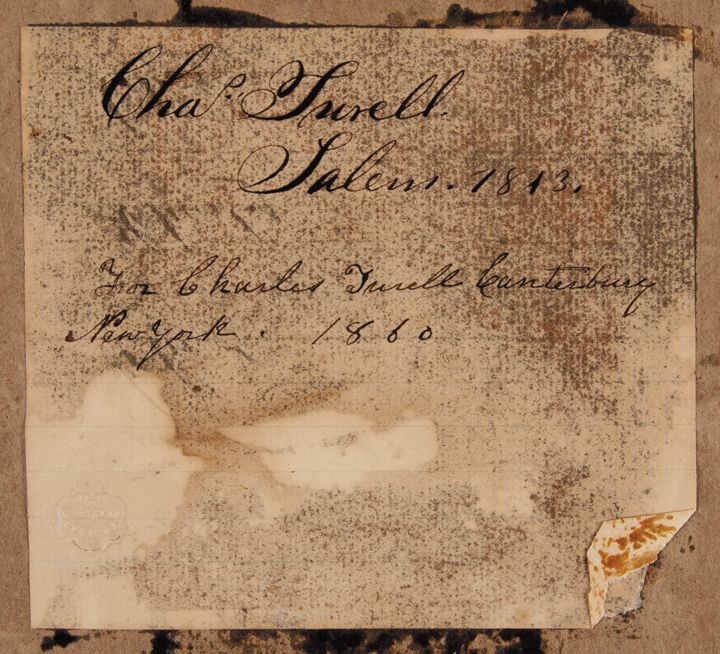 Chas. Turell.
Salem. 1813.
For Charles Turell Canterbury
New York. 1860